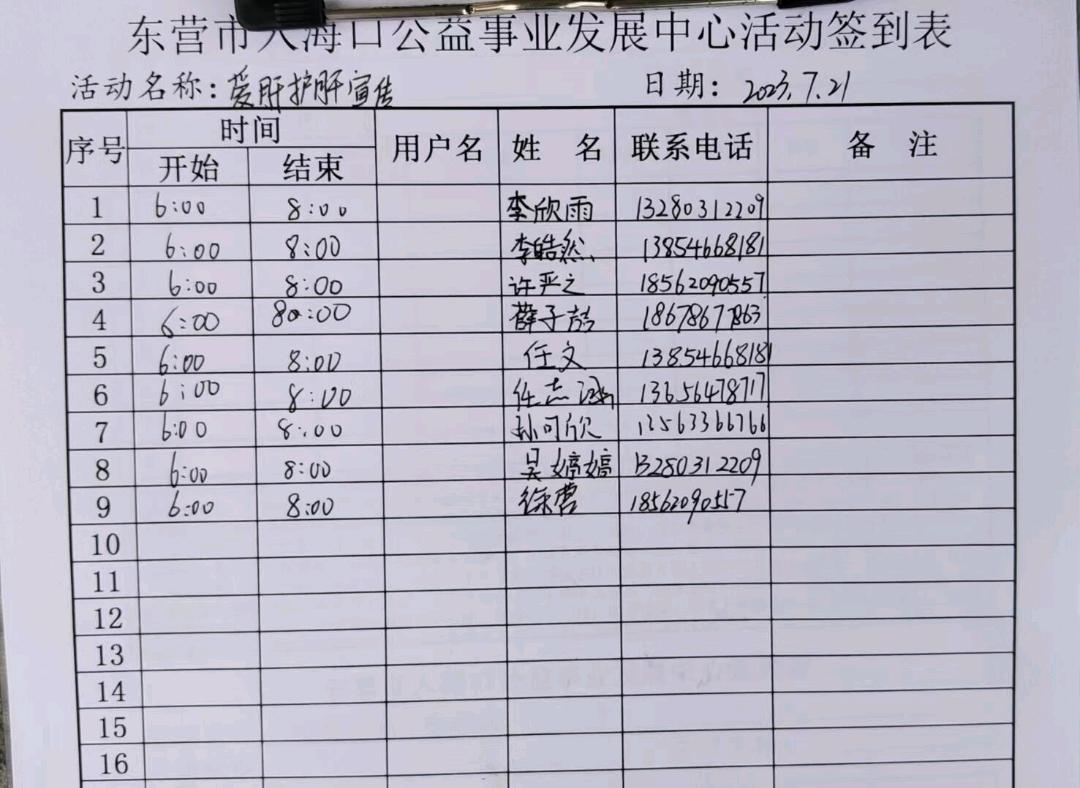 东营市入海口公益事业发展中心活动签到表
活动名称：爱肝护肝宣传 日期：2023.7.21
序号 时间 用户名 姓 名 联系电话 备 注
开始 结束
1 6:00 8:00 李欣雨 13280312209
2 6:00 8:00 李皓然 13854668181
3 6:00 8:00 许严之 18562090557
4 6:00 8:00 薛子喆 18678677863
5 6:00 8:00 任文 13854668181
6 6:00 8:00 任志涵 13656478717
7 6:00 8:00 孙可欣 13563366766
8 6:00 8:00 吴嫱嫱 13280312209
9 6:00 8:00 徐营 18562090557
10
11
12
13
14
15
16